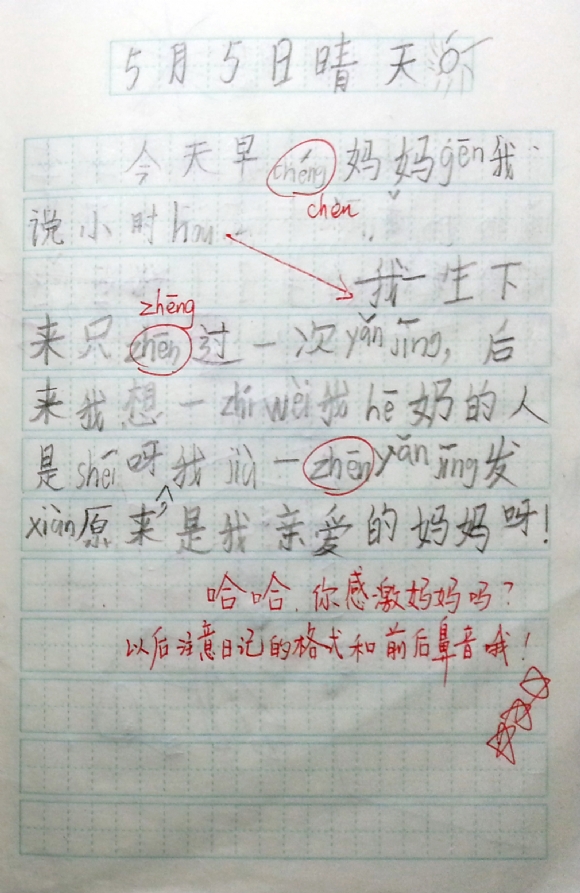 5月5日晴天
今天早chéng妈妈gēn我
chén
说小时hou
我一生下
zhēng
来只zhēn过一次yǎn jīng,后
来我想一zhí wèi我hē奶的人
是shéi呀我jiù一zhēn yǎn jīng发
xiàn原来,是我亲爱的妈妈呀!
哈哈,你感激妈妈吗?
以后注意日记的格式和前后鼻音哦!